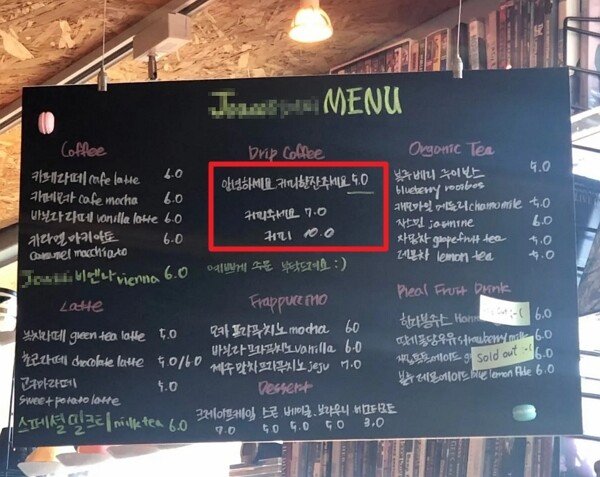 MENU
Coffee
카페라떼 cafe latte 6.0
카페모카 cafe mocha 6.0
바닐라라떼 vanilla latte 6.0
카라멜마키아토 6.0
caramel macchiato
비엔나 vienna 6.0
Drip Coffee
안녕하세요 커피한잔주세요 5.0
커피주세요 7.0
커피 10.0
예쁘게 주문 부탁드려요 :)
Organic Tea
블루베리 루이보스 5.0
blueberry rooibos
캐모마일 chamomile 5.0
자스민 jasmine 6.0
자몽차 grapefruit tea 5.0
레몬차 lemon tea 5.0
Latte
녹차라떼 green tea latte 5.0
초코라떼 chocolate latte 5.0/6.0
고구마라떼 5.0
sweet potato latte
스페셜밀크티 milk tea 6.0
Frappuccino
모카 프라푸치노 mocha 6.0
바닐라 프라푸치노 vanilla 6.0
제주 말차 프라푸치노 jeju 7.0
Dessert
크레이프케익 스콘 베이글 브라우니
7.0 5.0 5.0 5.0 3.0
Real Fruit Drink
한라봉주스 out :-( 6.0
딸기생과일우유 strawberry milk 6.0
Sold out :-( 6.0
블루레몬에이드 blue lemon Ade 6.0